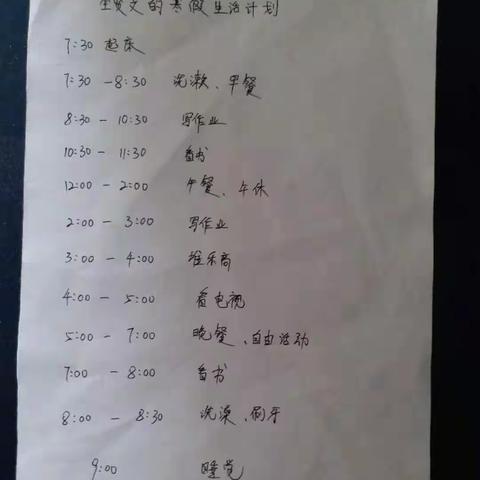 文的寒假生活计划
7:30 起床
7:30 - 8:30 洗漱、早餐
8:30 - 10:30 写作业
10:30 - 11:30 看书
12:00 - 2:00 午餐、午休
2:00 - 3:00 写作业
3:00 - 4:00 堆乐高
4:00 - 5:00 看电视
5:00 - 7:00 晚餐、自由活动
7:00 - 8:00 看书
8:00 - 8:30 洗澡、刷牙
9:00 睡觉